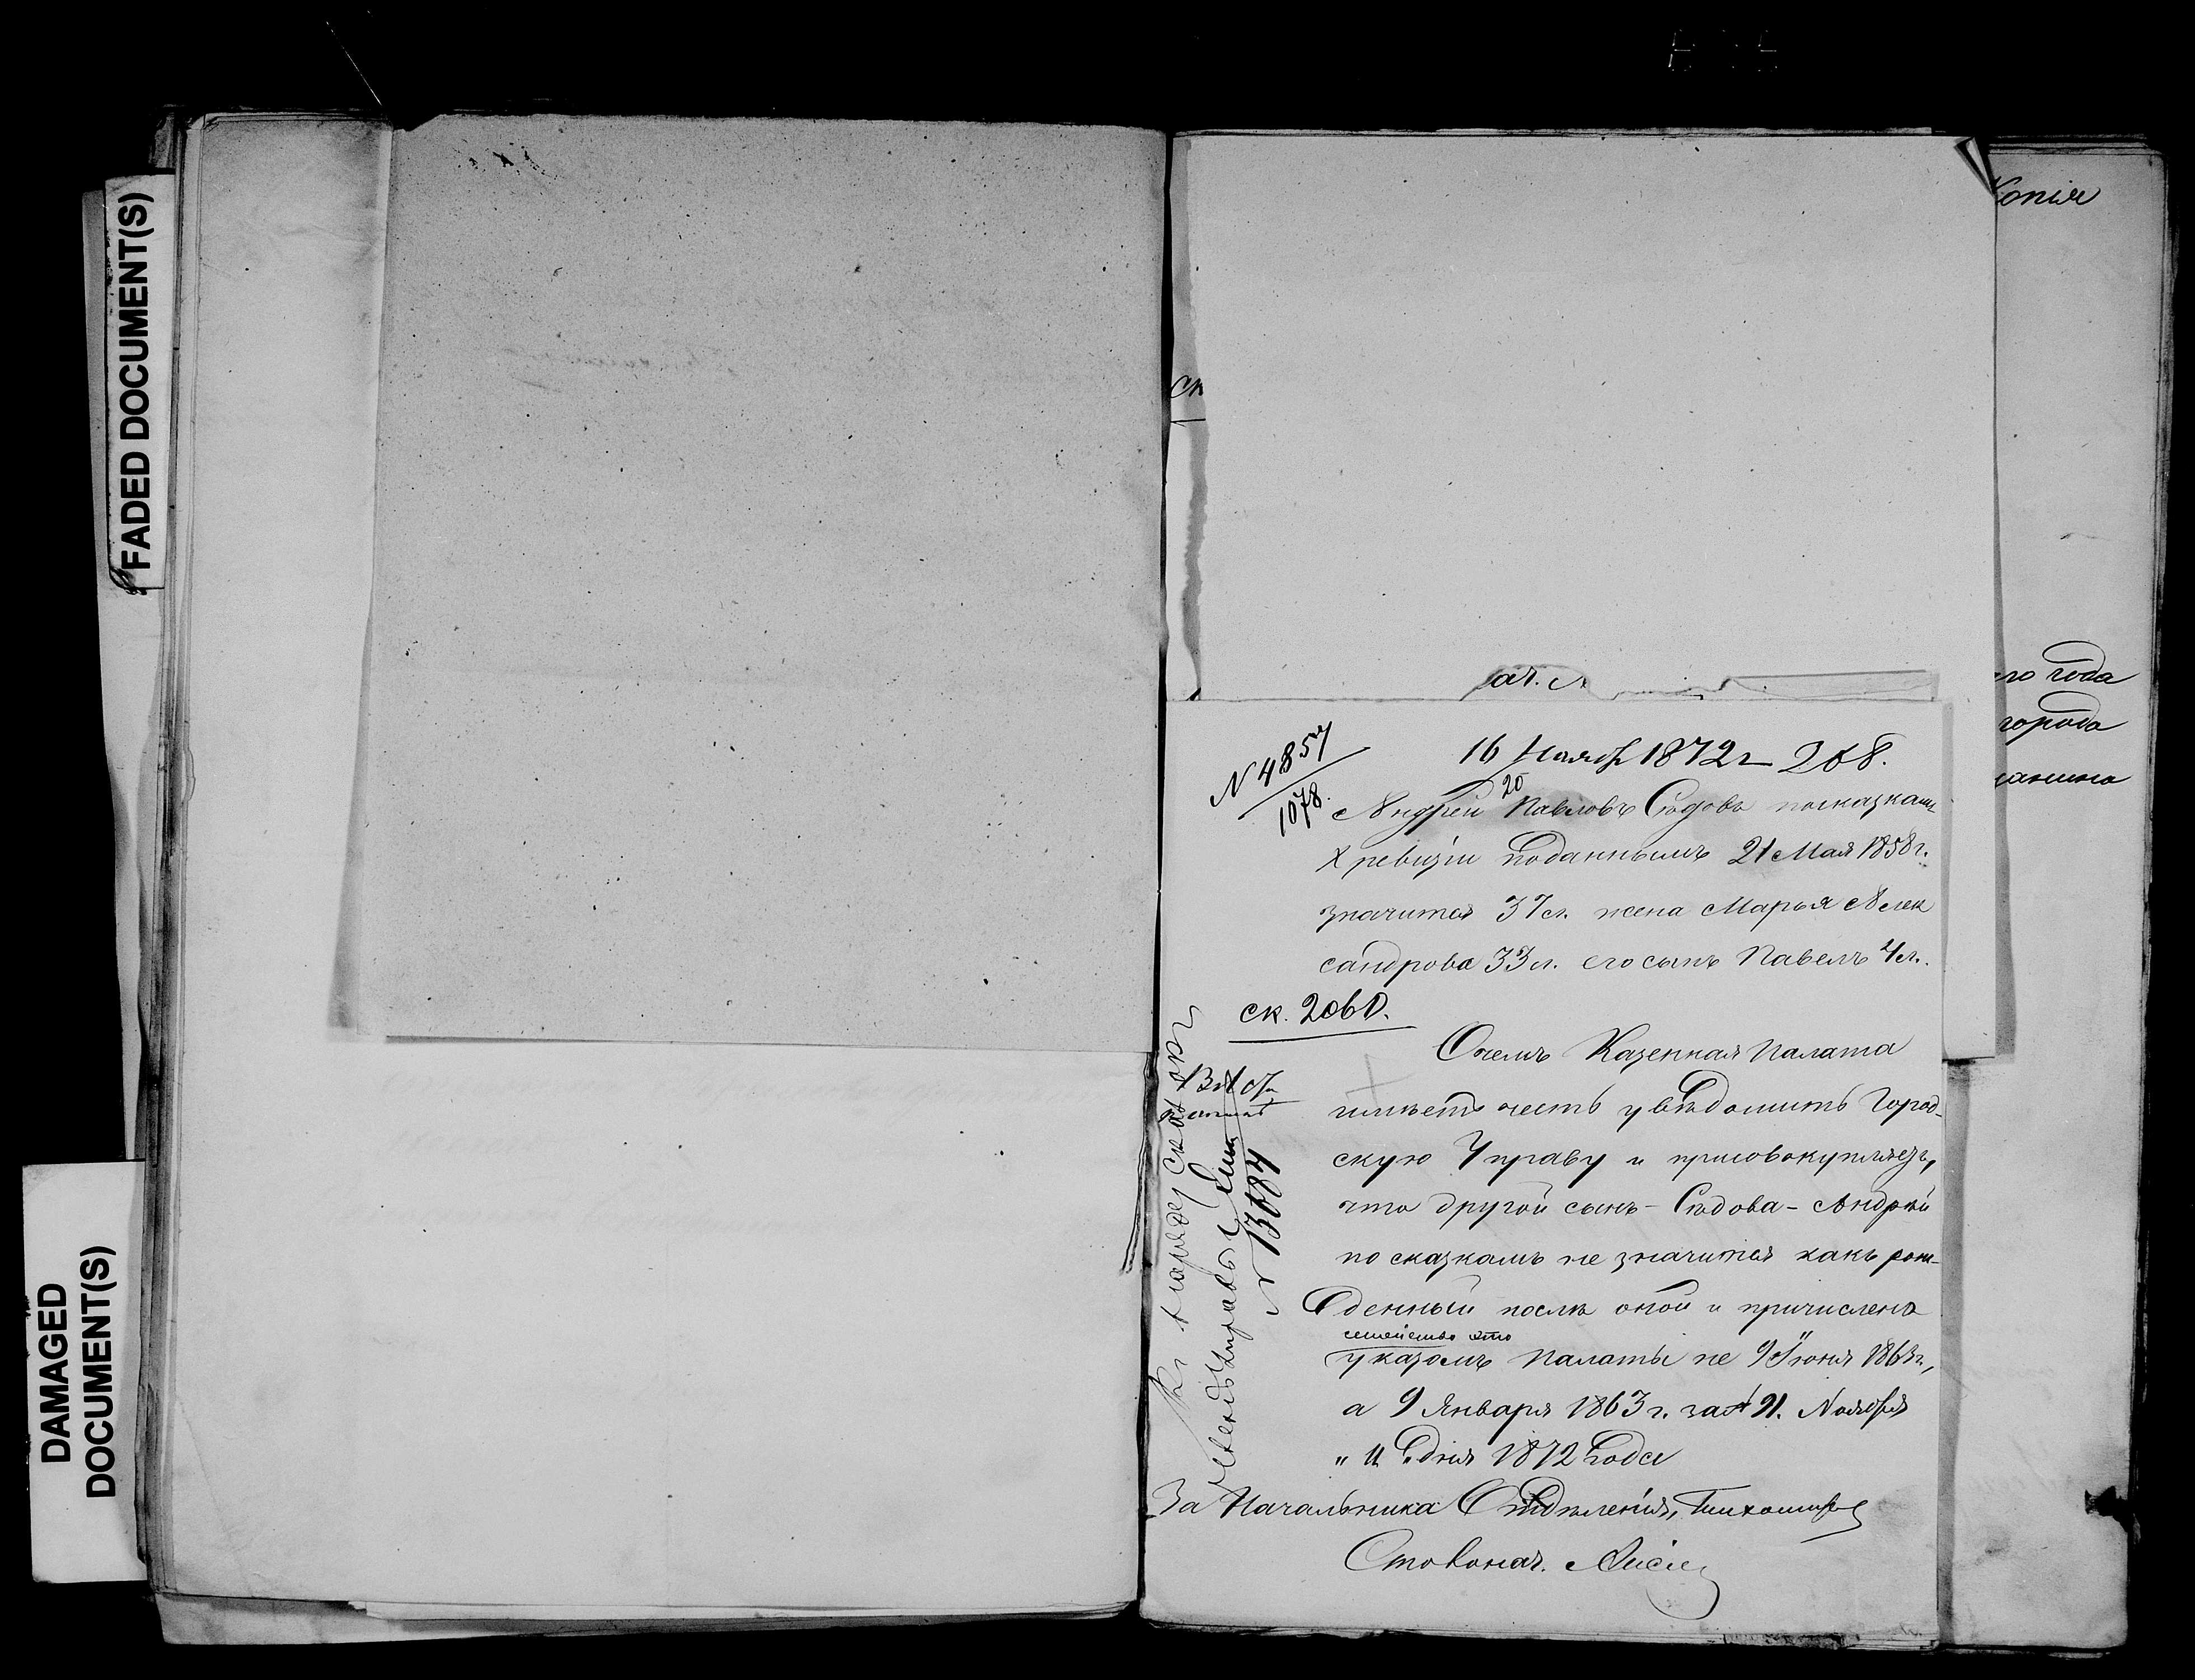 FADED DOCUMENT(S)
DAMAGED
DOCUMENT(S)
Копія
го года
города
ск
ач.
N 4857
1078.
16 Ноябр 1872 г 268.
20
Андрей Павловъ Сѣдовъ посказкамъ
X ревизіи поданнымъ 21 Мая 1858 г.
значится 37 л. жена Марья Алек
сандрова 33 л. его сынъ Павелъ 4 л.
ск. 2060.
О чемъ Казенная Палата
имѣетъ честь увѣдомить Город-
скую Управу и присовокупляетъ,
что другой сынъ - Сѣдова - Андрей
по сказкамъ не значится какъ рож-
денный послѣ оной и причислено
семейство это
указомъ Палаты не 9 Іюня 1863 г.,
а 9 Января 1863 г. за № 91. Ноября
" 11 " дня 1872 года
За Начальника Отдѣленія, Тихомиров
Столонач.
N 13684